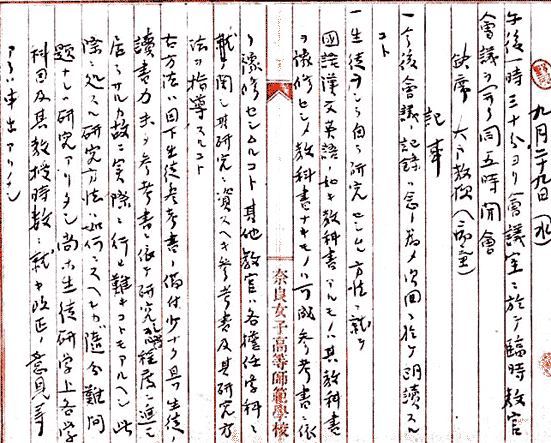 九月二十九日(水)
午後一時三十分ヨリ會議室ニ於テ臨時教官
會議ヲ開キ同五時閉會
缺席 大戸教授(病氣)
記事
一今後會議ノ記録ハ念ノ為メ次回ニ於テ朗讀スル
コト
一生徒ヲシテ自ラ研究セシムル方法ニ就テ
國語漢文英語ノ如キ教科書アルモノハ其教科書
ヲ豫修セシメ教科書ナキモノハ可成参考書ニ依
リ豫修センムルコト其他教官ハ各擔任学科ニ
就キ関シ其研究ノ資スヘキ参考書及其研究方
法ヲ指導スルコト
奈良女子高等師範學校
右方法ハ目下生徒参考書ノ備付少ナク且ツ生徒ノ
讀書力未タ参考書ニ依テ研究スル程度ニ進ミ
居ラサルカ故ニ実際ニ行ヒ難キコトモアルヘシ此
際ニ処スル研究方法ハ如何ニスヘキカ随分難問
題ナレハ研究アリタシ尚ホ生徒研学上各学
科目及其教授時数ニ就キ改正ノ意見等
アラハ申出アリタシ